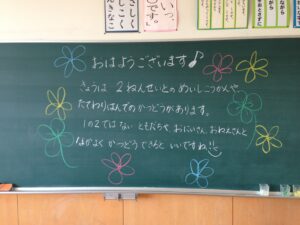 いっ
です。
おはようございます♪
きょうは 2ねんせいとの めいしこうかんや、
たてわりはんでの かつどうがあります。
1の2では ない ともだちや、おにいさん、おねえさんと
なかよく かつどう できると いいですね!!